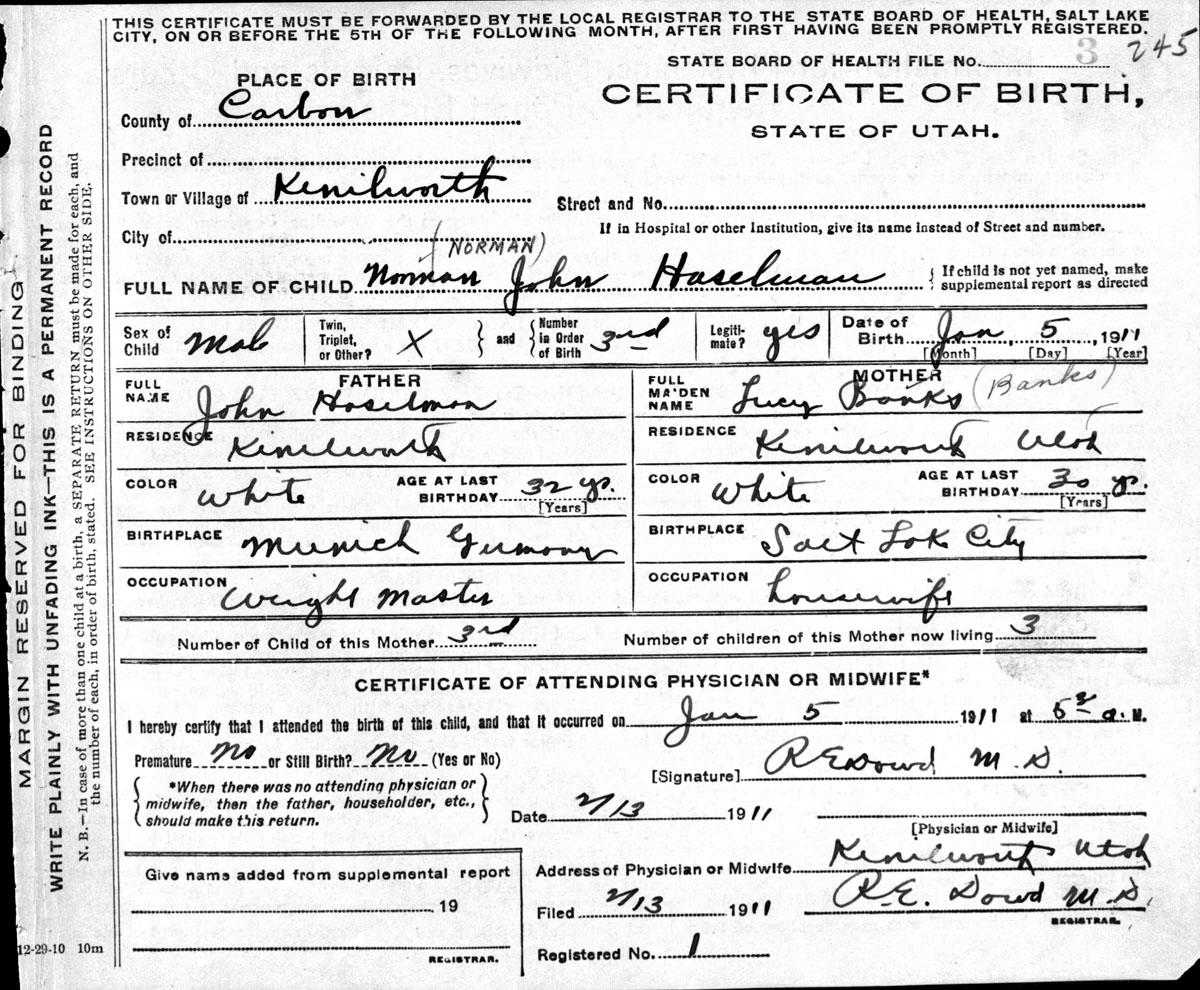 THIS CERTIFICATE MUST BE FORWARDED BY THE LOCAL REGISTRAR TO THE STATE BOARD OF HEALTH, SALT LAKE
CITY, ON OR BEFORE THE 5TH OF THE FOLLOWING MONTH, AFTER FIRST HAVING BEEN PROMPTLY REGISTERED.
3
STATE BOARD OF HEALTH FILE No. 245
PLACE OF BIRTH
CERTIFICATE OF BIRTH,
STATE OF UTAH.
County of Carbon
Precinct of
Town or Village of Kenilworth
Street and No.
City of
If in Hospital or other Institution, give its name instead of Street and number.
(NORMAN)
FULL NAME OF CHILD Norman John Haselman
{ If child is not yet named, make
supplemental report as directed
Sex of Child Male
Twin, Triplet, or Other? X } and { Number in Order of Birth 3rd
Legitimate? yes
Date of Birth Jan. 5 1911
[Month] [Day] [Year]
FATHER
FULL NAME John Haselman
MOTHER
FULL MAIDEN NAME Lucy Banks (Banks)
RESIDENCE Kenilworth
RESIDENCE Kenilworth Utah
COLOR White
AGE AT LAST BIRTHDAY 32 ys.
[Years]
COLOR White
AGE AT LAST BIRTHDAY 30 ys.
[Years]
BIRTHPLACE Munich Germany
BIRTHPLACE Salt Lake City
OCCUPATION Weigh Master
OCCUPATION housewife
Number of Child of this Mother 3rd
Number of children of this Mother now living 3
CERTIFICATE OF ATTENDING PHYSICIAN OR MIDWIFE*
I hereby certify that I attended the birth of this child, and that it occurred on Jan 5 1911 at 5 a. M.
Premature No or Still Birth? No (Yes or No)
[Signature] R E Dowd M.D.
{ *When there was no attending physician or
midwife, then the father, householder, etc.,
should make this return. }
Date 2/13 1911
[Physician or Midwife]
Give name added from supplemental report
19
REGISTRAR.
Address of Physician or Midwife Kenilworth Utah
Filed 2/13 1911
R.E. Dowd M.D.
REGISTRAR.
Registered No. 1
12-29-10 10m
MARGIN RESERVED FOR BINDING
WRITE PLAINLY WITH UNFADING INK—THIS IS A PERMANENT RECORD
N. B.—In case of more than one child at a birth, a SEPARATE RETURN must be made for each, and
the number of each, in order of birth, stated. SEE INSTRUCTIONS ON OTHER SIDE.